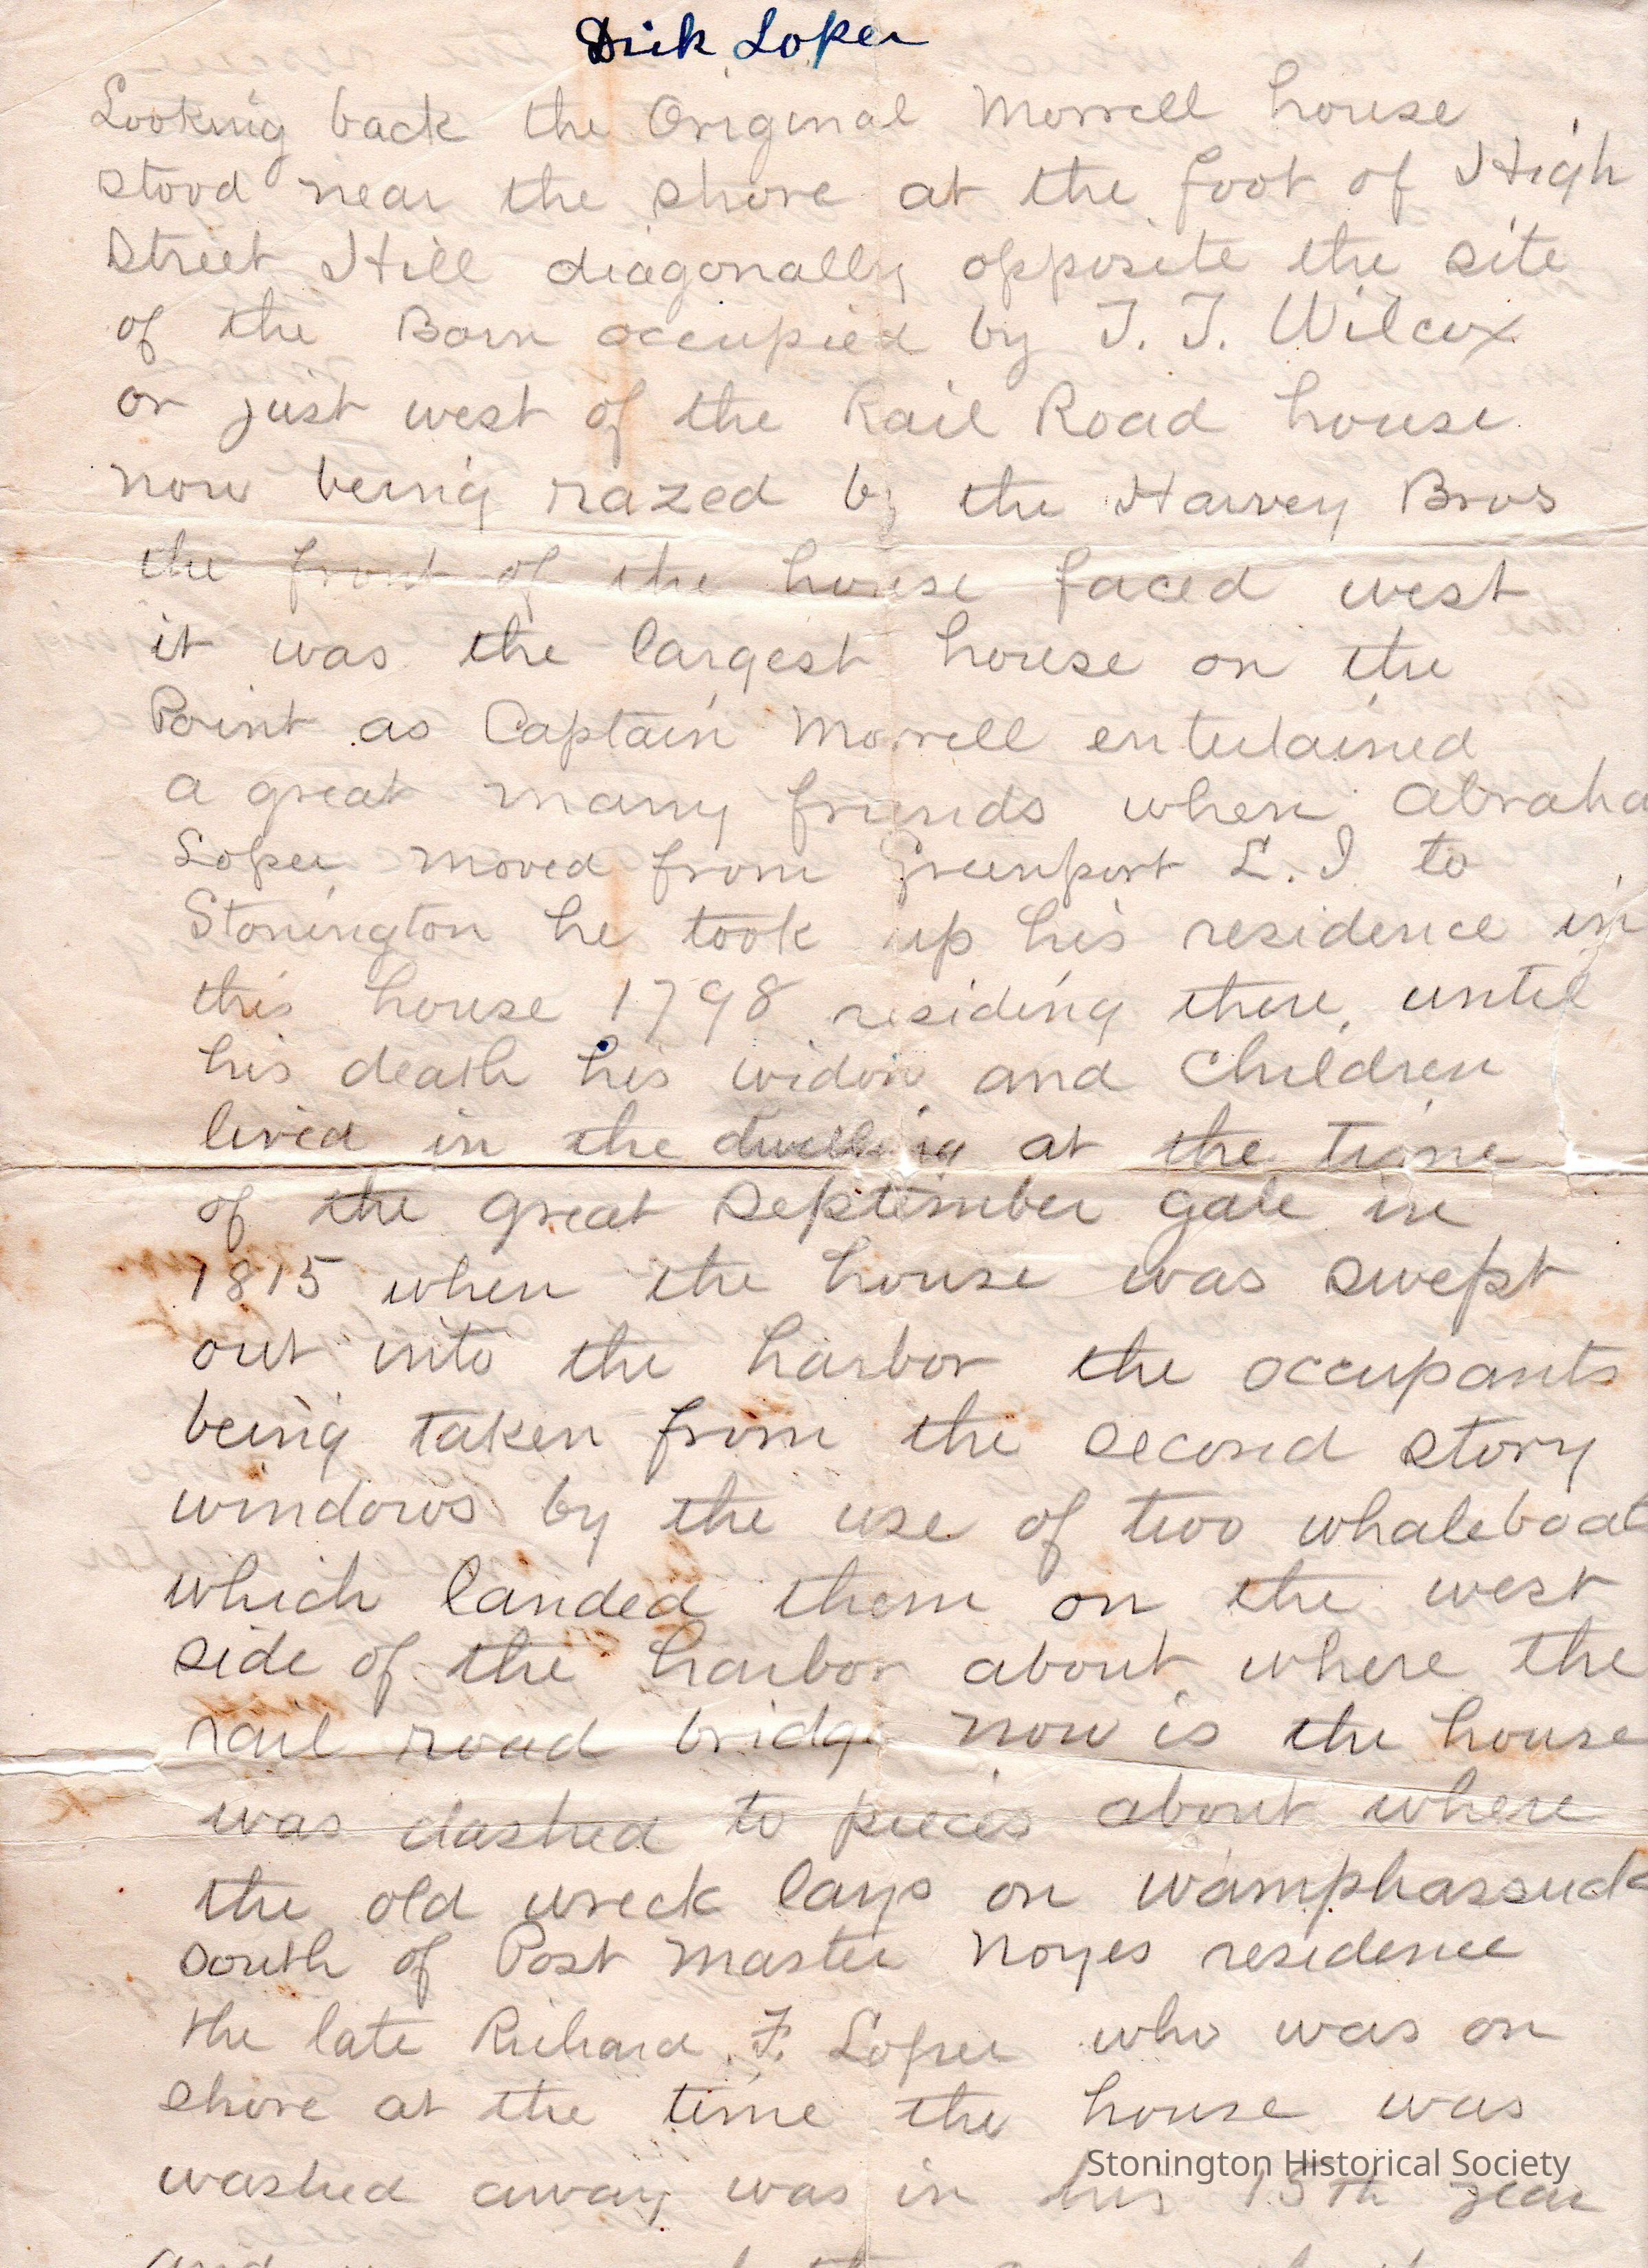 Dick Loper
Looking back the Original Morrell house
stood near the shore at the foot of High
Street Hill diagonally opposite the site
of the Barn occupied by T. T. Wilcox
or just west of the Rail Road house
now being razed by the Harvey Bros
the front of the house faced west
it was the largest house on the
Point as Captain Morrell entertained
a great many friends when Abraha
Loper moved from Greenport L.I to
Stonington he took up his residence in
this house 1798 residing there, until
his death his widow and children
lived in the dwelling at the time
of the great September gale in
1815 when the house was swept
out into the harbor the occupants
being taken from the second story
windows by the use of two whaleboat
which landed them on the west
side of the harbor about where the
rail road bridge now is the house
was dashed to pieces about where
the old wreck lays on Wamphassuck
south of Post Master Noyes residence
the late Richard F. Loper who was on
shore at the time the house was
washed away was in his 15th year
Stonington Historical Society
and